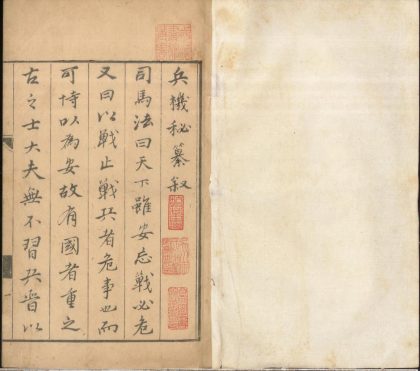 兵機秘纂叙
司馬法曰天下雖安忘戰必危
又曰以戰止戰兵者危事也而
可恃以為安故有國者重之
古之士大夫無不習兵晉以